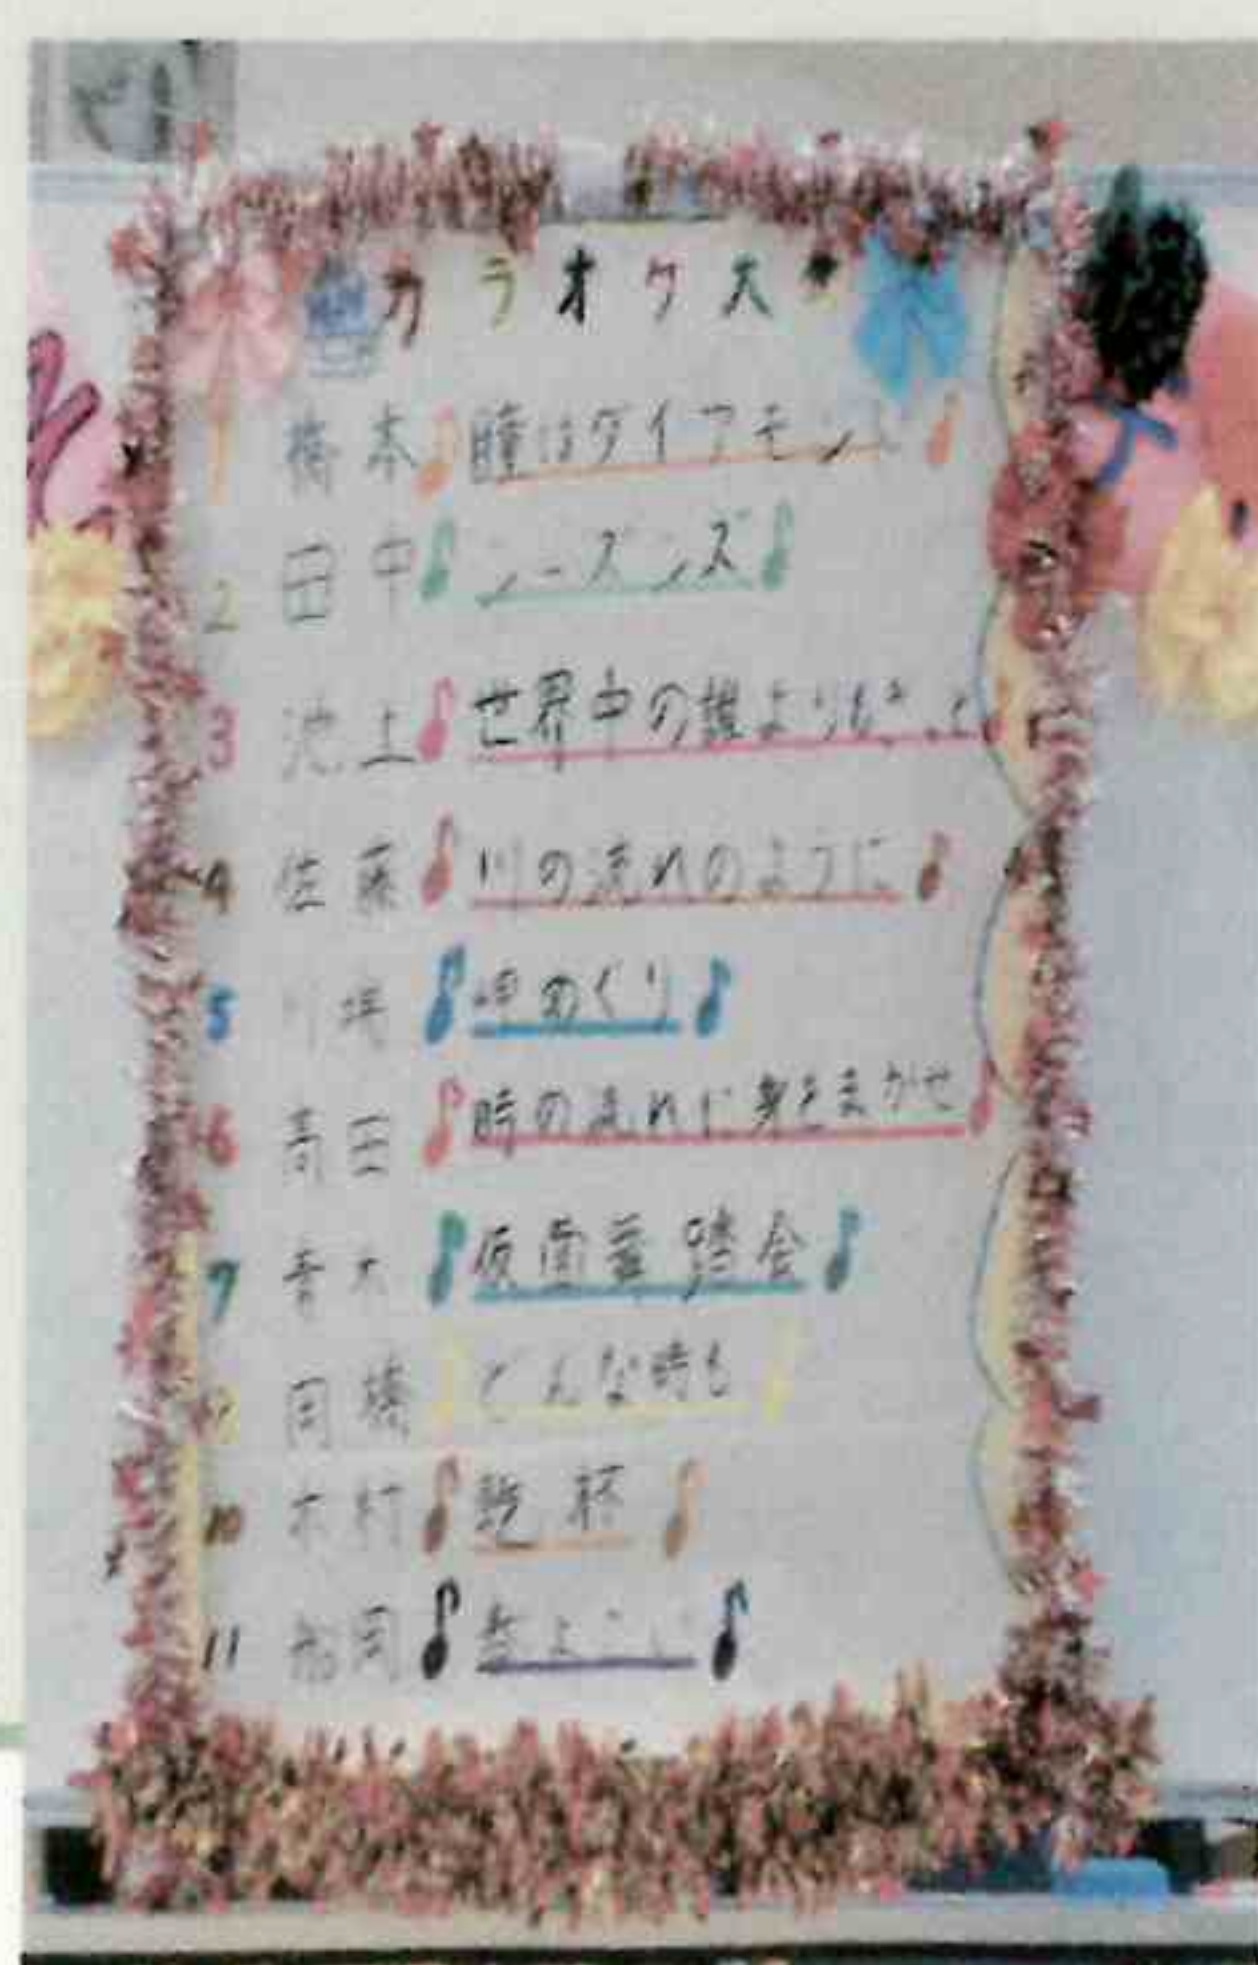 カラオケ大
1 橋本 瞳はダイアモンド
2 田中 シーズンズ
3 池上 世界中の誰よりきっと
4 佐藤 川の流れのように
5 川崎 岬めぐり
6 高田 時の流れに身をまかせ
7 青木 仮面舞踏会
岡 どんな時も
10 木村 乾杯
11 岡